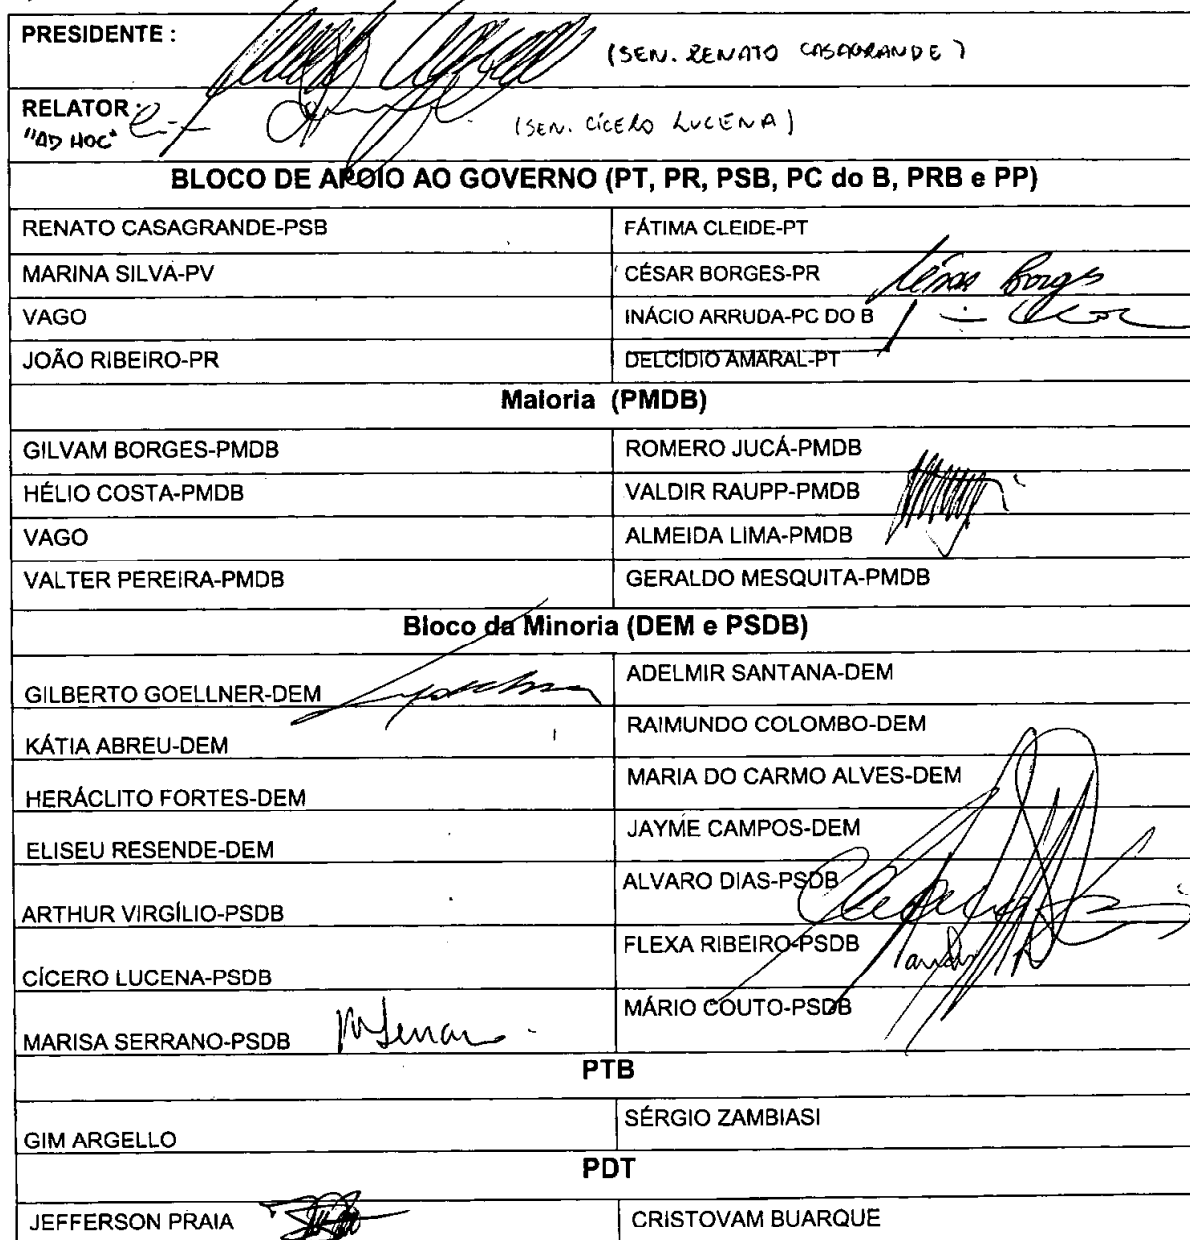 PRESIDENTE :
(SEN. RENATO CASAGRANDE)
RELATOR :
"AD HOC"
(SEN. CÍCERO LUCENA)
BLOCO DE APOIO AO GOVERNO (PT, PR, PSB, PC do B, PRB e PP)
RENATO CASAGRANDE-PSB
FÁTIMA CLEIDE-PT
MARINA SILVA-PV
CÉSAR BORGES-PR
César Borges
VAGO
INÁCIO ARRUDA-PC DO B
JOÃO RIBEIRO-PR
DELCÍDIO AMARAL-PT
Maioria (PMDB)
GILVAM BORGES-PMDB
ROMERO JUCÁ-PMDB
HÉLIO COSTA-PMDB
VALDIR RAUPP-PMDB
VAGO
ALMEIDA LIMA-PMDB
VALTER PEREIRA-PMDB
GERALDO MESQUITA-PMDB
Bloco da Minoria (DEM e PSDB)
GILBERTO GOELLNER-DEM
ADELMIR SANTANA-DEM
KÁTIA ABREU-DEM
RAIMUNDO COLOMBO-DEM
HERÁCLITO FORTES-DEM
MARIA DO CARMO ALVES-DEM
ELISEU RESENDE-DEM
JAYME CAMPOS-DEM
ARTHUR VIRGÍLIO-PSDB
ALVARO DIAS-PSDB
CÍCERO LUCENA-PSDB
FLEXA RIBEIRO-PSDB
MARISA SERRANO-PSDB
MÁRIO COUTO-PSDB
PTB
GIM ARGELLO
SÉRGIO ZAMBIASI
PDT
JEFFERSON PRAIA
CRISTOVAM BUARQUE